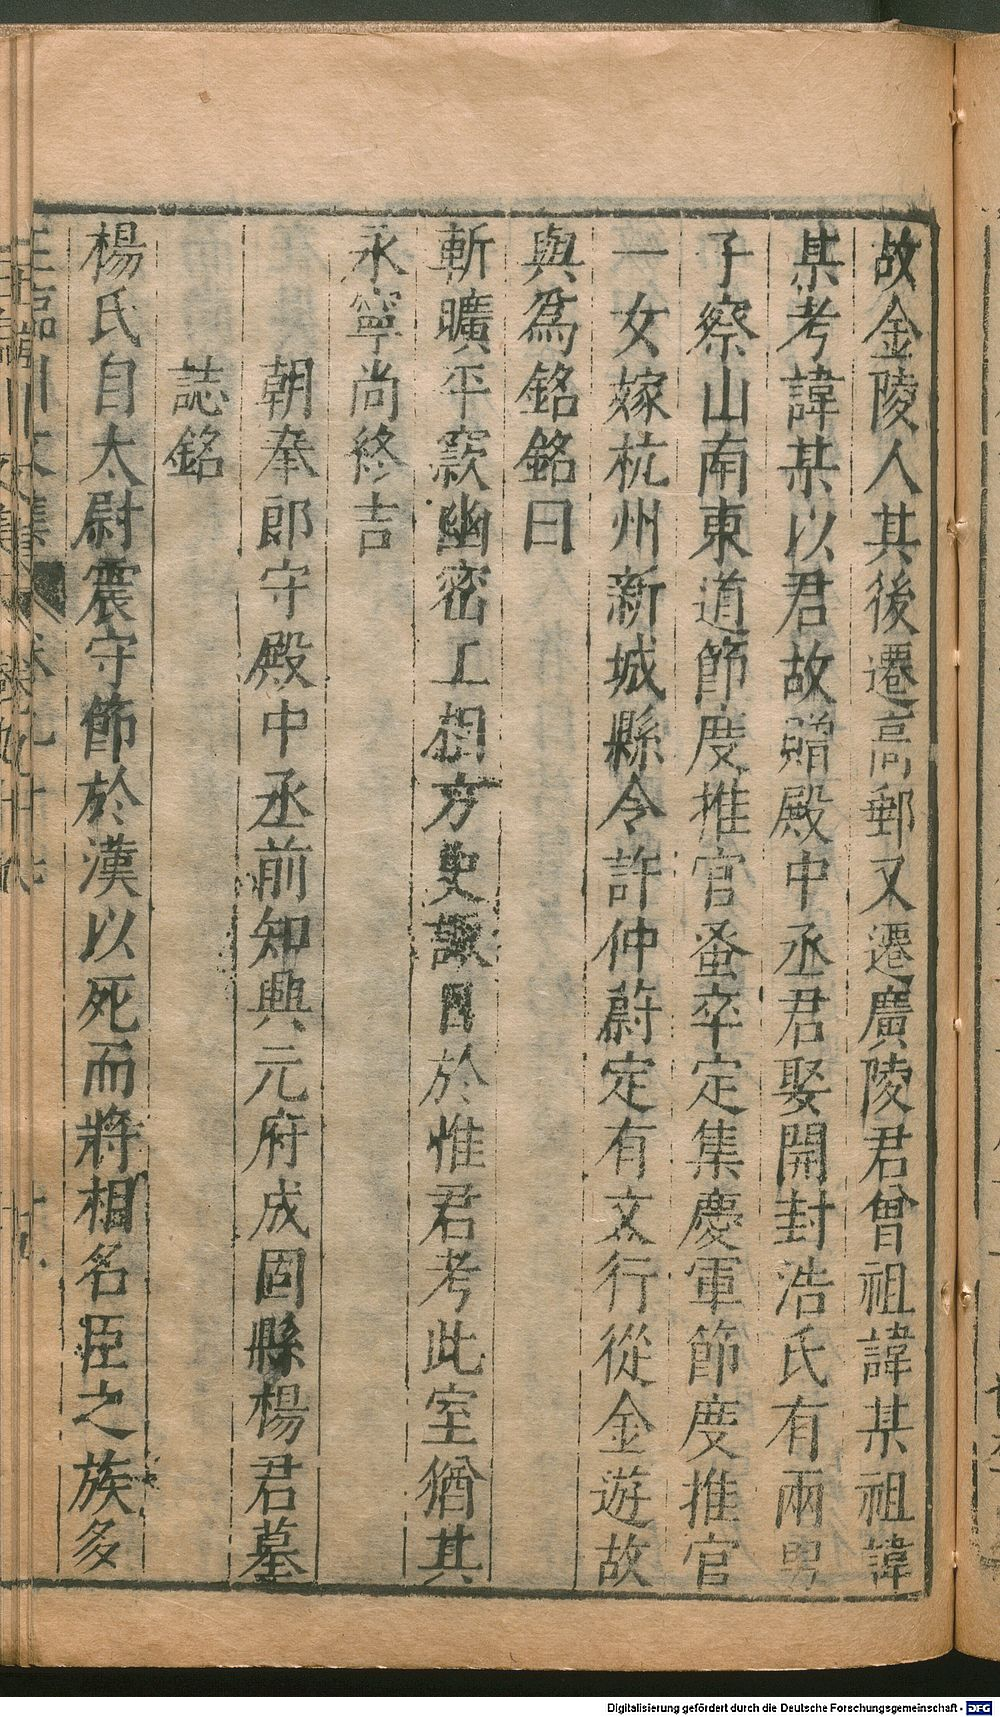 故金陵人其後遷高郵又遷廣陵君曾祖諱某祖諱
某考諱某以君故贈殿中丞君娶開封浩氏有兩男
子察山南東道節度推官蚤卒定集慶軍節度推官
一女嫁杭州新城縣令許仲蔚定有文行從金遊故
與爲銘銘曰
斬曠平窾幽密工相方史諏日於惟君考此室猶其
永寧尚終吉
朝奉郎守殿中丞前知興元府成固縣楊君墓
誌銘
楊氏自太尉震守節於漢以死而將相名臣之族多
Digitalisierung gefördert durch die Deutsche Forschungsgemeinschaft - DFG